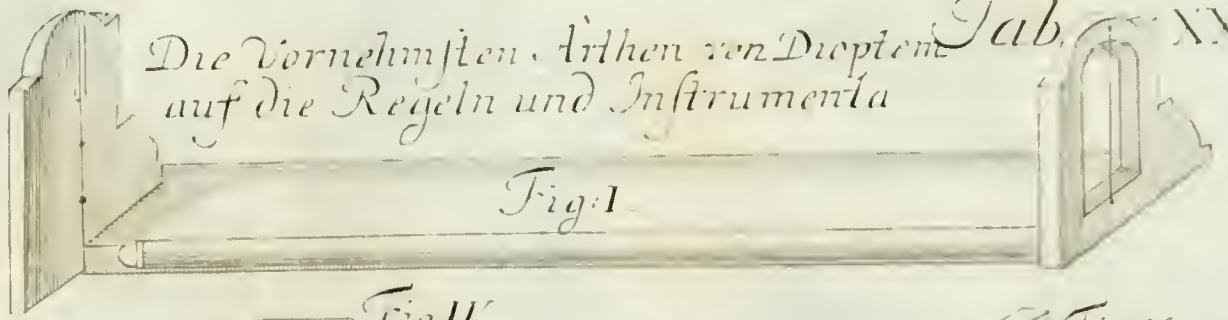 Die Vornehmsten Arthen von Dioptern Tab. XX
auf die Regeln und Instrumenta
Fig: I
Fig II
Fig